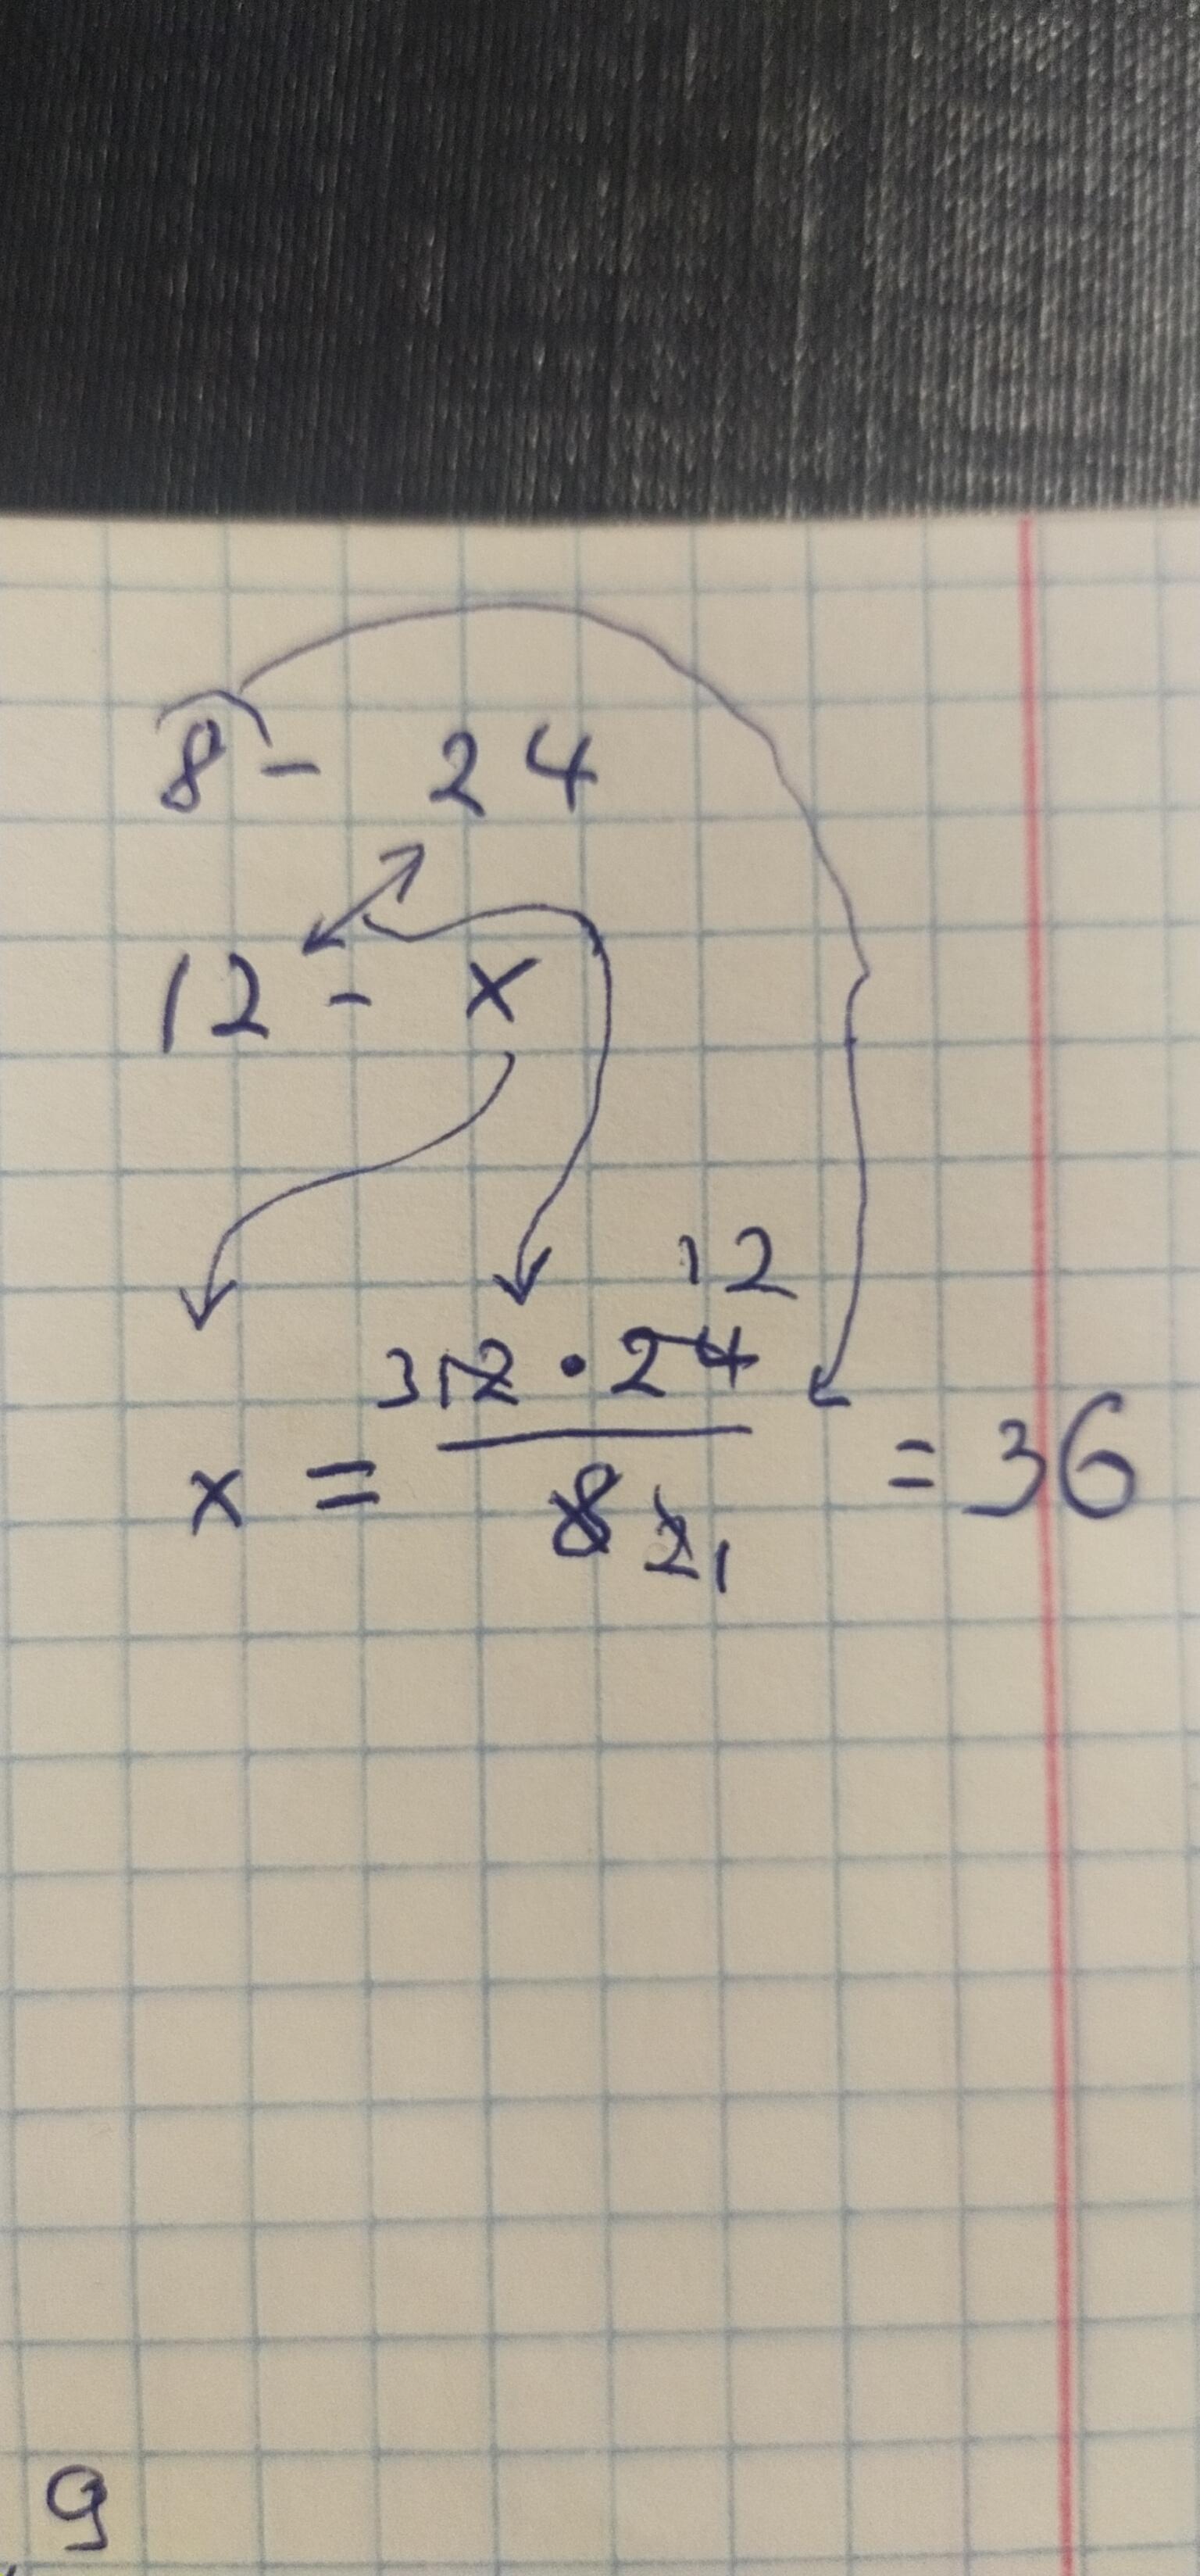 8 - 24
12 - x
12
x = 312 · 24 / 8 2 1 = 36
9